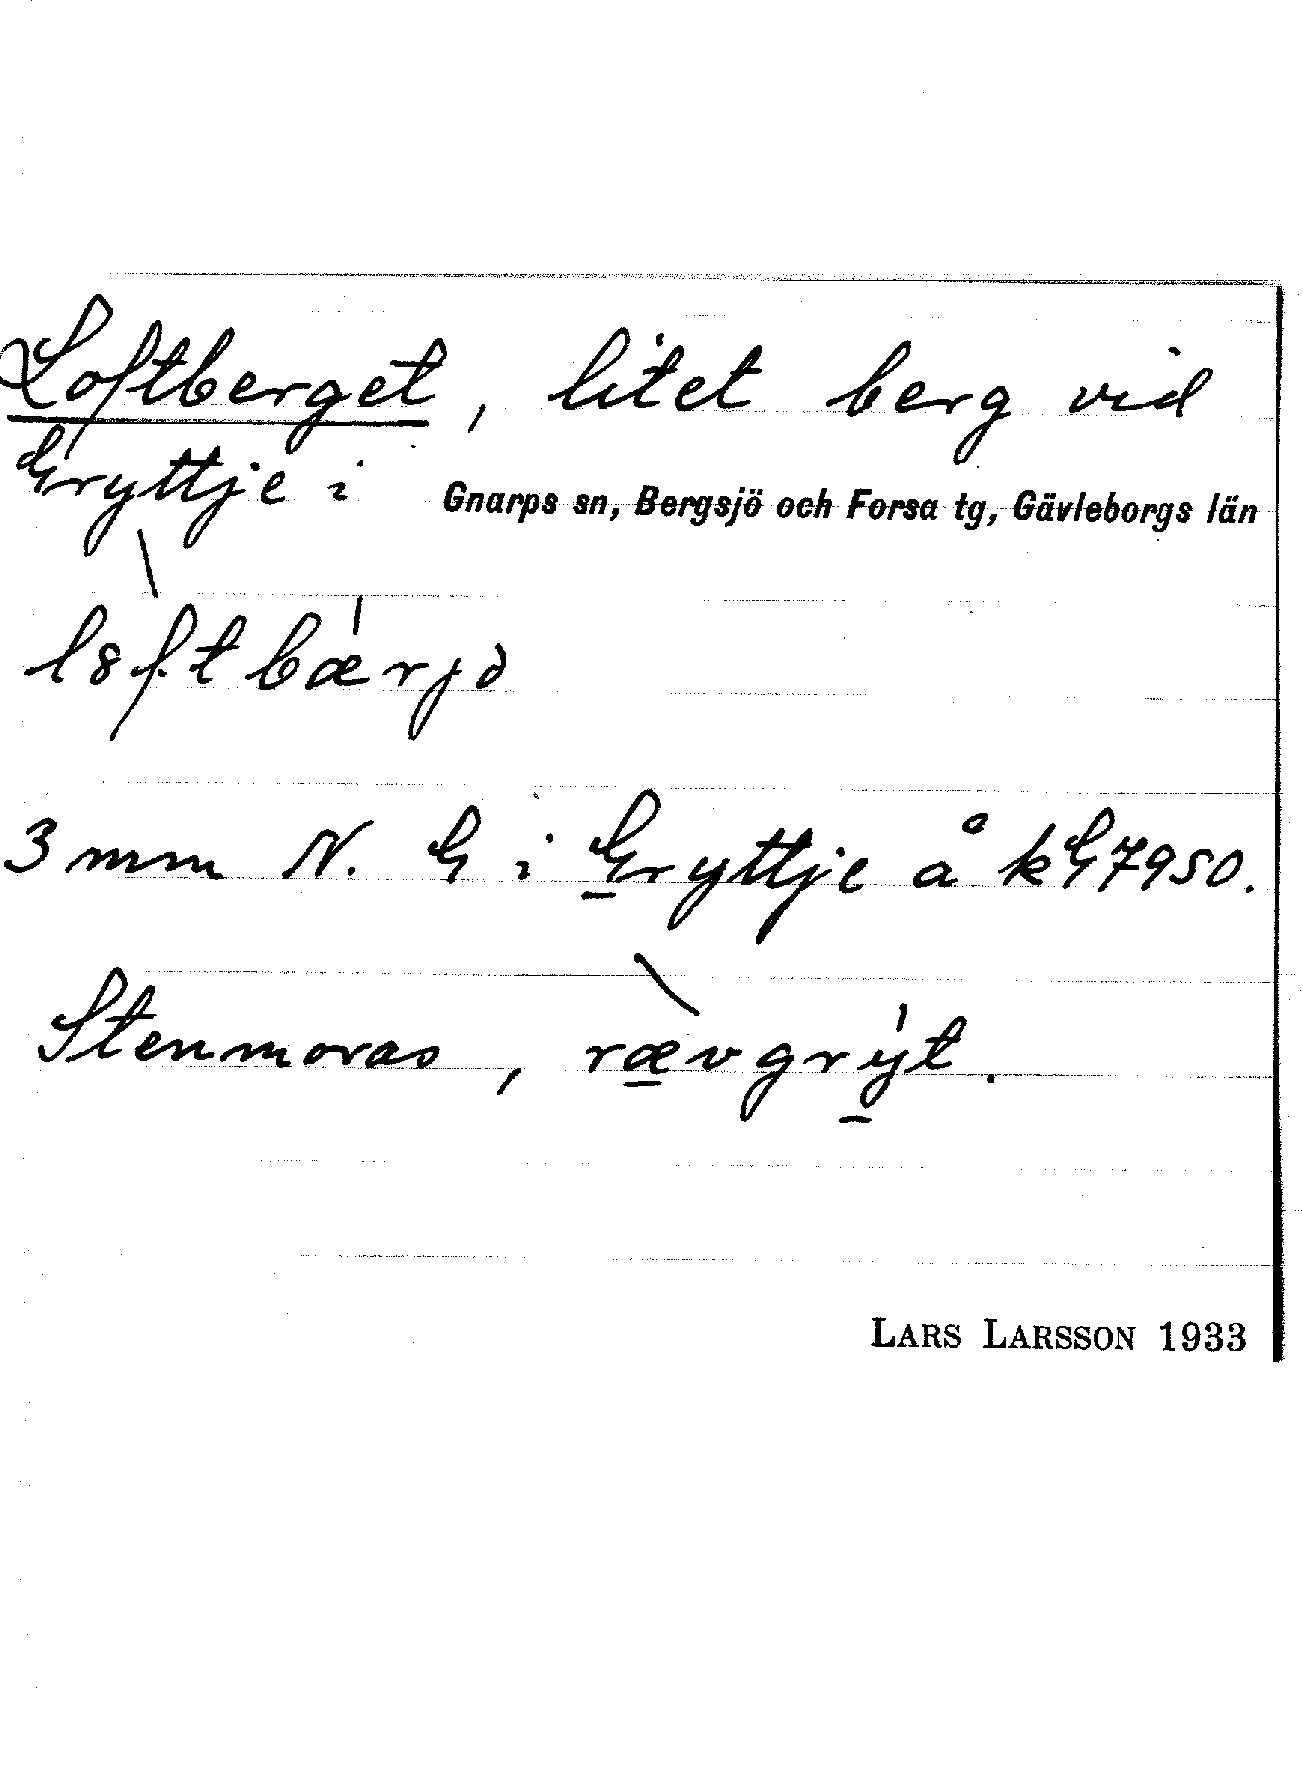 Loftberget, litet berg vid
Gryttje i Gnarps sn, Bergsjö och Forsa tg, Gävleborgs län
l8ftbærjə
3 mm N. G i Gryttje å kG7950.
Stenmoras, rævgryt.
LARS LARSSON 1933